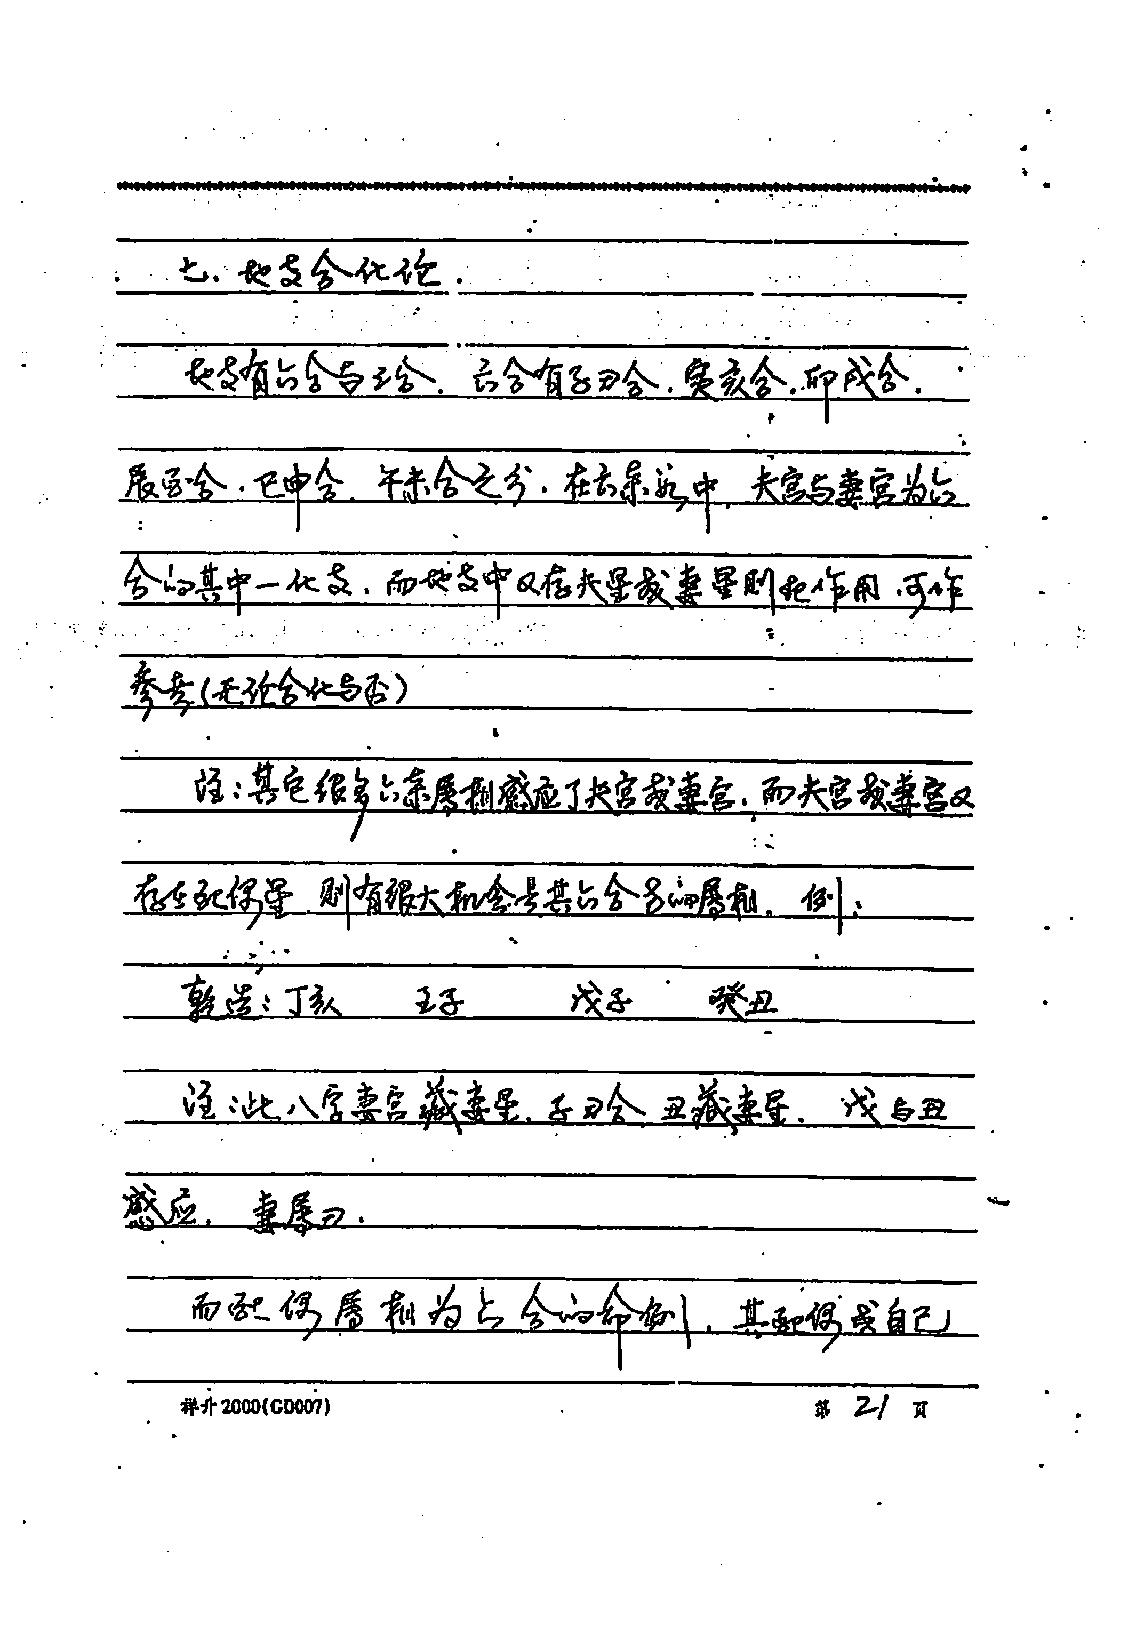 七、地支合化论.
地支有六合与三合.六合有子丑合.寅亥合.卯戌合.
辰酉合.巳申合.午未合之分.在六亲宫中,夫宫与妻宫为六
合的其中一化支.而地支中又存夫星或妻星则起作用.可作
参考(无论合化与否)
注:其它很多六亲属相感应了夫宫或妻宫.而夫宫或妻宫又
存在配偶星 则有很大机会是其六合的属相. 例:
乾造:丁亥 壬子 戊子 癸丑
注:此八字妻宫藏妻星.子丑合 丑藏妻星. 戊与丑
感应. 妻属丑.
而配偶属相为六合的命例.其配偶或自己
祥升2000(GD007) 第 21 页